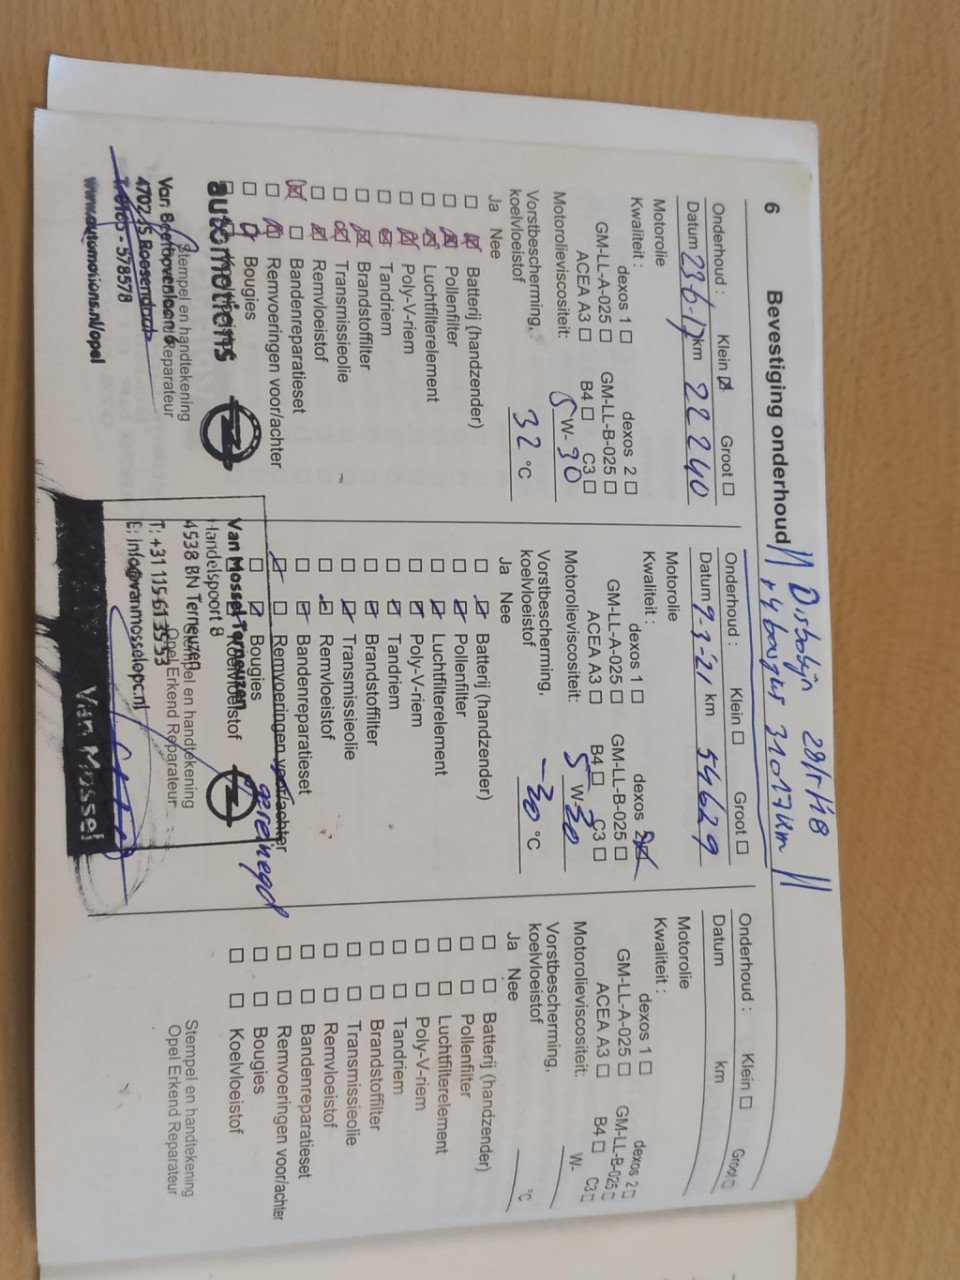 6 Bevestiging onderhoud
29/5/'18
31017 km
Onderhoud : Klein Groot
Datum 23-6-17 km 22240
Motorolie
Kwaliteit : dexos 1 dexos 2
GM-LL-A-025 GM-LL-B-025
ACEA A3 B4 C3
Motorolieviscositeit: 5 W- 30
Vorstbescherming,
koelvloeistof 32 °C
Ja Nee
Batterij (handzender)
Pollenfilter
Luchtfilterelement
Poly-V-riem
Tandriem
Brandstoffilter
Transmissieolie
Remvloeistof
Bandenreparatieset
Remvoeringen voor/achter
Bougies
automotions
Stempel en handtekening
Opel Erkend Reparateur
Van Beethovenlaan 6
4702 JS Roosendaal
T. 0165 - 578578
www.automotions.nl/opel
Onderhoud : Klein Groot
Datum 9-3-'21 km 54629
Motorolie
Kwaliteit : dexos 1 dexos 2
GM-LL-A-025 GM-LL-B-025
ACEA A3 B4 C3
Motorolieviscositeit: 5 W- 30
Vorstbescherming,
koelvloeistof -30 °C
Ja Nee
Batterij (handzender)
Pollenfilter
Luchtfilterelement
Poly-V-riem
Tandriem
Brandstoffilter
Transmissieolie
Remvloeistof
Bandenreparatieset
Remvoeringen voor/achter
gereinigd
Bougies
Koelvloeistof
Van Mossel Terneuzen
Handelspoort 8
4538 BN Terneuzen
Stempel en handtekening
Opel Erkend Reparateur
T: +31 115 61 35 53
E: info@vanmosselopc.nl
Van Mossel
Onderhoud : Klein Groot
Datum km
Motorolie
Kwaliteit : dexos 1 dexos 2
GM-LL-A-025 GM-LL-B-025
ACEA A3 B4 C3
Motorolieviscositeit: W-
Vorstbescherming,
koelvloeistof °C
Ja Nee
Batterij (handzender)
Pollenfilter
Luchtfilterelement
Poly-V-riem
Tandriem
Brandstoffilter
Transmissieolie
Remvloeistof
Bandenreparatieset
Remvoeringen voor/achter
Bougies
Koelvloeistof
Stempel en handtekening
Opel Erkend Reparateur